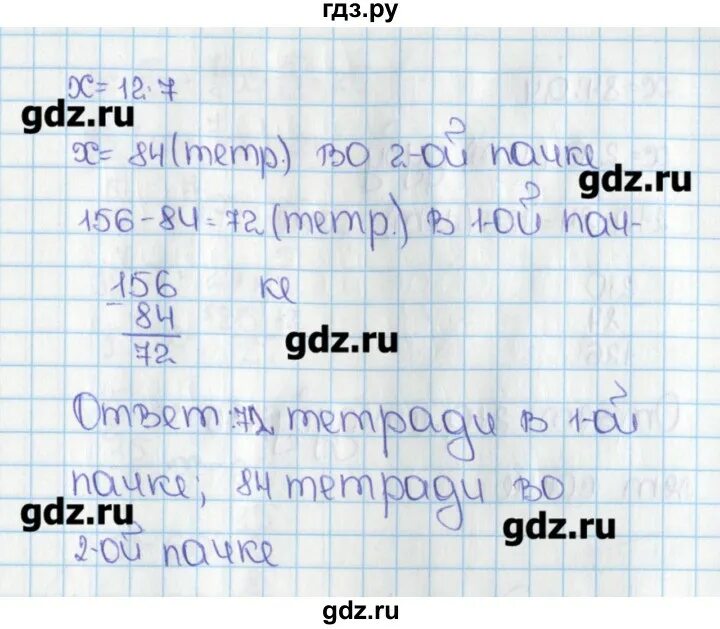 гдз.ру
x = 12·7
gdz.ru
x = 84 (тетр.) во 2-ой пачке
gdz.ru
156 - 84 = 72 (тетр.) в 1-ой пач-
156 ке
- 84
gdz.ru
72
Ответ: 72 тетради в 1-ой
пачке; 84 тетради во
gdz.ru
gdz.ru
2-ой пачке
gdz.ru